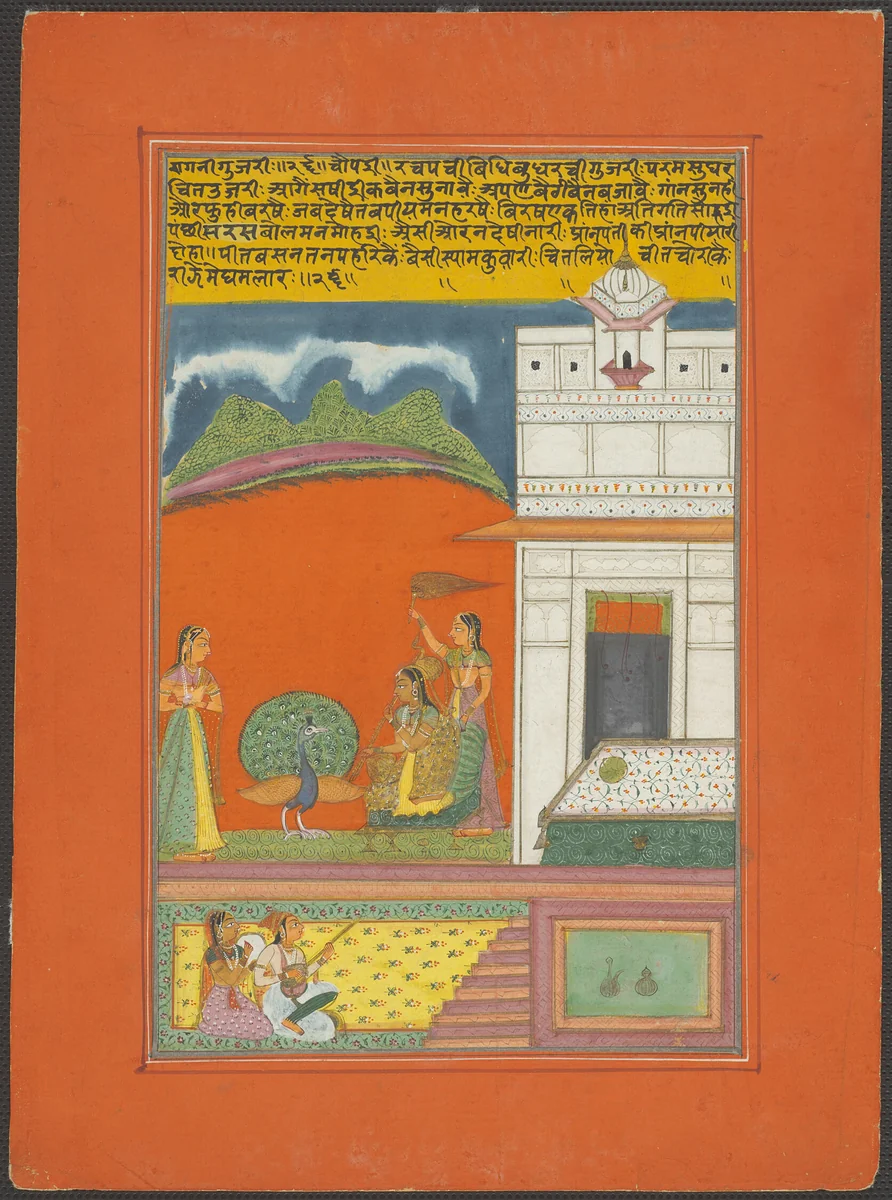 रागनी गुजरी:॥२६॥ चौपई॥ रचपची बिधि बुधरची गुजरी: परम सुघर
चित उजरी: आगें सषी ईक बैन सुनावे: अपणें बेगी बैन बजावे: गान सुनही
और फुही बरषे: जब देषत बपीय मन हरषे: बिरष एक तिहा अति गति
पंछी सरस बोल मन मोहई: असी आरन देषी नारी: प्रानपती की प्रांनपीयारी
दोहा॥ पीत बसन तन पहरिकैं: बैसी स्याम कुवारी: चित लियो चीत चोरीकै:
रागमेघमलार:॥२६॥